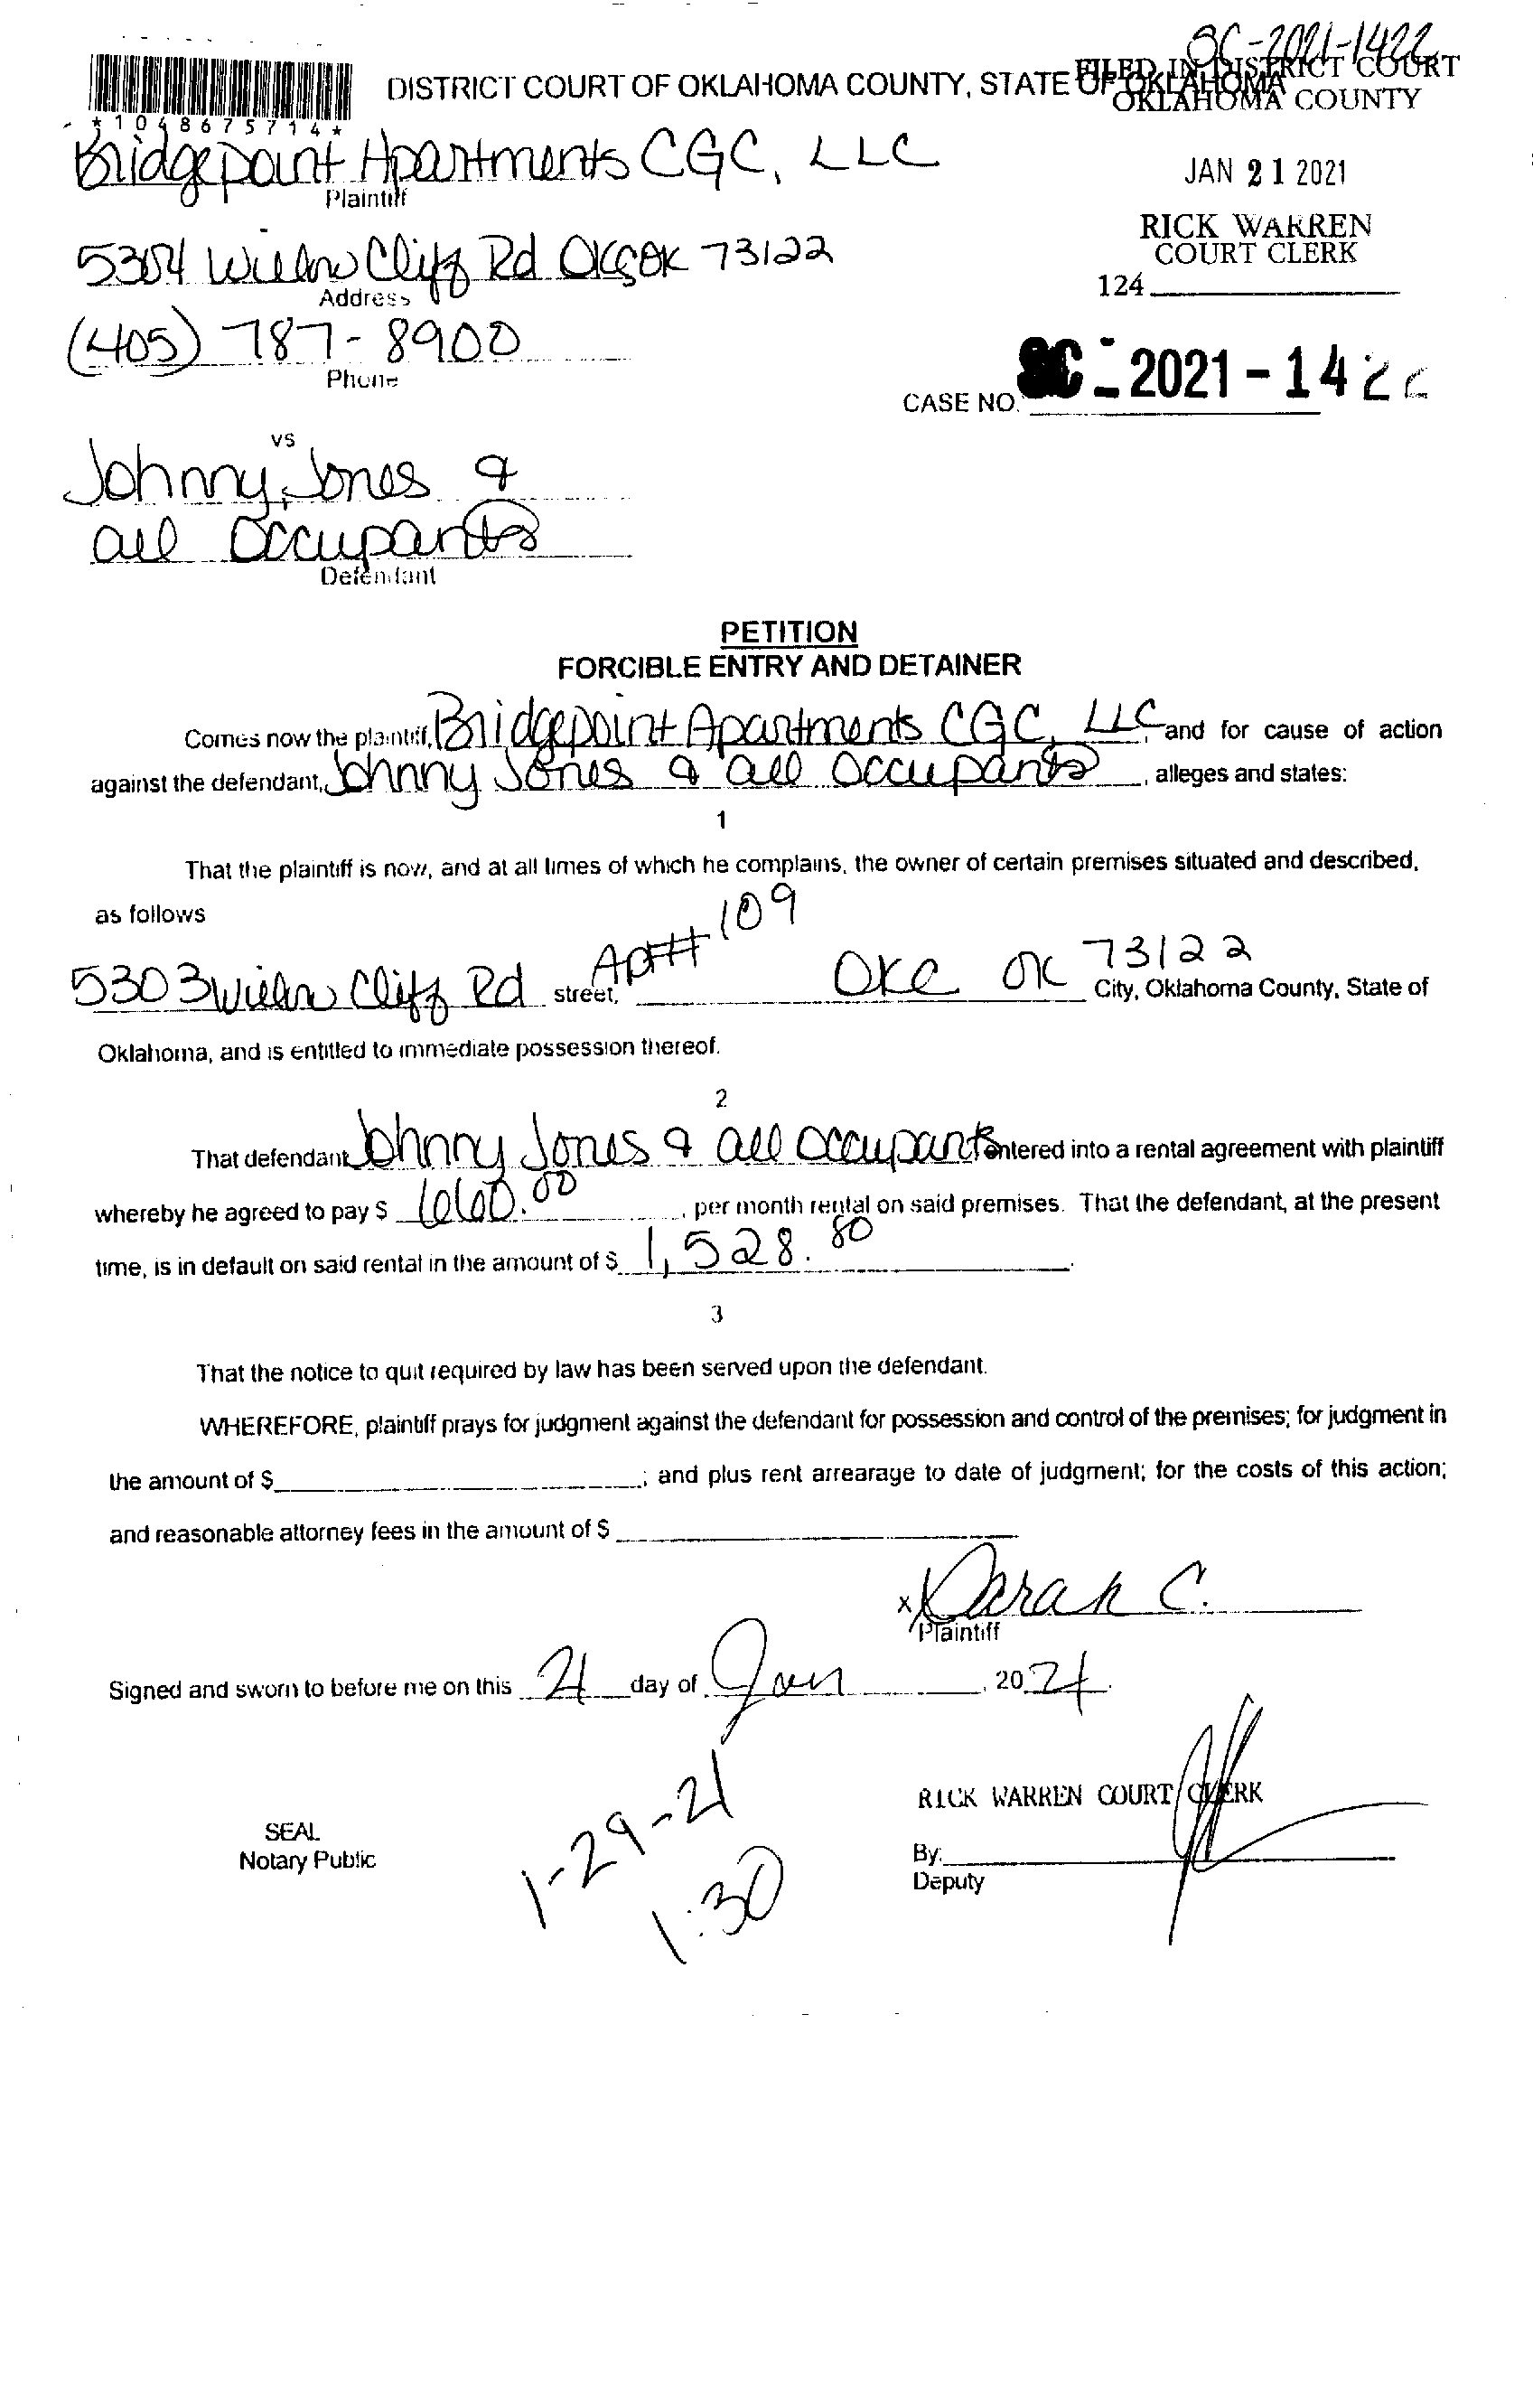 SC-2021-1422
DISTRICT COURT OF OKLAHOMA COUNTY, STATE OF OKLAHOMA
FILED IN DISTRICT COURT
OKLAHOMA COUNTY
*1048675714*
Bridgepoint Apartments CGC, LLC
Plaintiff
JAN 21 2021
RICK WARREN
COURT CLERK
124
5304 Willow Cliff Rd OKC OK 73122
Address
(405) 787-8900
Phone
CASE NO. SC-2021-1422
vs
Johnny Jones &
all Occupants
Defendant
PETITION
FORCIBLE ENTRY AND DETAINER
Comes now the plaintiff, Bridgepoint Apartments CGC, LLC and for cause of action
against the defendant, Johnny Jones & all Occupants, alleges and states:
1
That the plaintiff is now, and at all times of which he complains, the owner of certain premises situated and described,
as follows
5303 Willow Cliff Rd street, Apt# 109 OKC OK 73122 City, Oklahoma County, State of
Oklahoma, and is entitled to immediate possession thereof.
2
That defendant Johnny Jones & all Occupants entered into a rental agreement with plaintiff
whereby he agreed to pay $ 660.00, per month rental on said premises. That the defendant, at the present
time, is in default on said rental in the amount of $ 1,528.80.
3
That the notice to quit required by law has been served upon the defendant.
WHEREFORE, plaintiff prays for judgment against the defendant for possession and control of the premises; for judgment in
the amount of $; and plus rent arrearage to date of judgment; for the costs of this action;
and reasonable attorney fees in the amount of $
x Sarah C.
Plaintiff
Signed and sworn to before me on this 21 day of Jan, 2021.
RICK WARREN COURT CLERK
SEAL
Notary Public
1-29-21
1:30
By:
Deputy